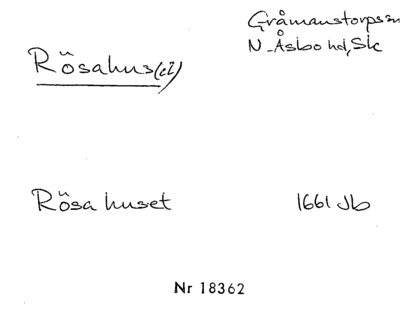 Gråmanstorps sn
N. Åsbo hd, Sk
Rösahus
Rösahuset 1661 Jb
Nr 18362